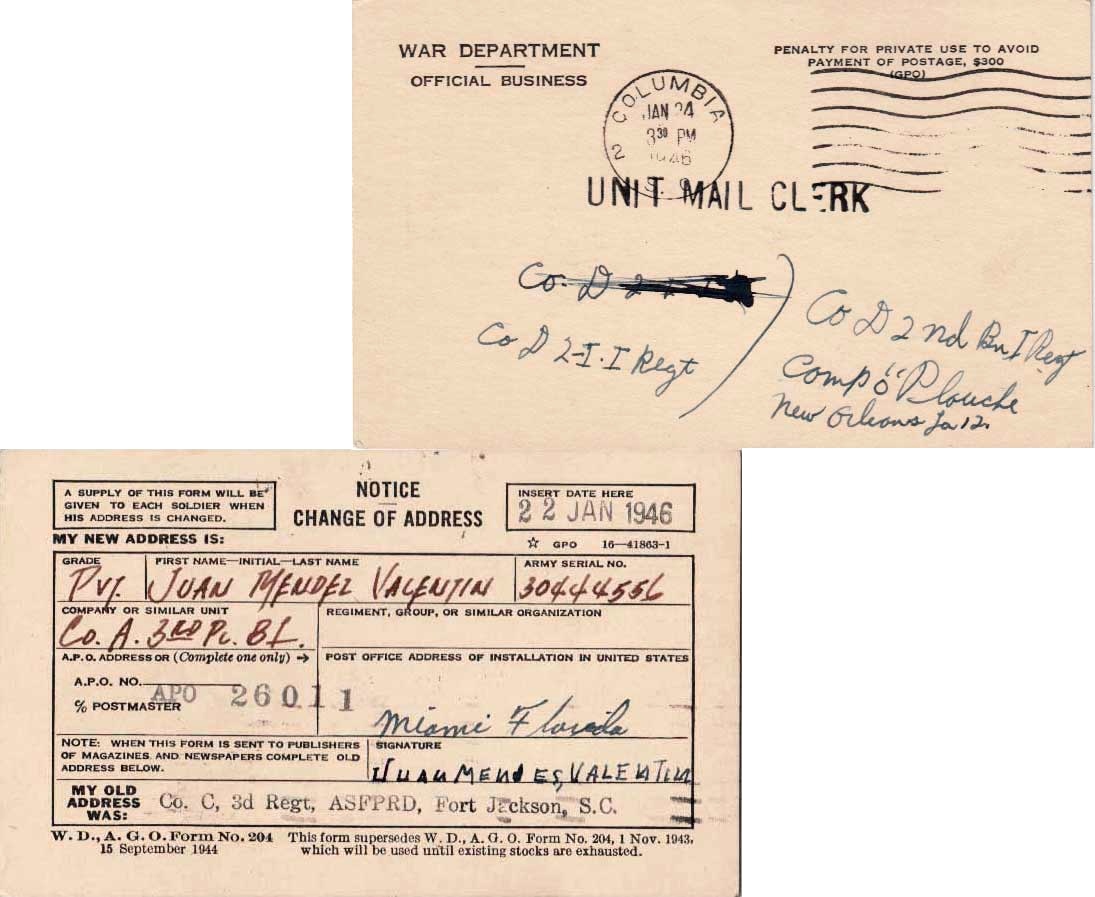 WAR DEPARTMENT
OFFICIAL BUSINESS
PENALTY FOR PRIVATE USE TO AVOID
PAYMENT OF POSTAGE, $300
(GPO)
COLUMBIA
JAN 24
3 30 PM
1946
2 S. C.
UNIT MAIL CLERK
Co. D 2
Co D 2-I. I Regt
Co D 2nd Bn I Regt
Comp "O" Plouche
New Orleans La 12.
A SUPPLY OF THIS FORM WILL BE
GIVEN TO EACH SOLDIER WHEN
HIS ADDRESS IS CHANGED.
NOTICE
CHANGE OF ADDRESS
INSERT DATE HERE
22 JAN 1946
☆ GPO 16—41863-1
MY NEW ADDRESS IS:
GRADE
FIRST NAME—INITIAL—LAST NAME
ARMY SERIAL NO.
Pvt. JUAN MENDEZ VALENTIN 30444556
COMPANY OR SIMILAR UNIT
REGIMENT, GROUP, OR SIMILAR ORGANIZATION
Co. A. 3RD
A.P.O. ADDRESS OR (Complete one only) →
POST OFFICE ADDRESS OF INSTALLATION IN UNITED STATES
A.P.O. NO.
APO 26011
% POSTMASTER
Miami Florida
NOTE: WHEN THIS FORM IS SENT TO PUBLISHERS
OF MAGAZINES AND NEWSPAPERS COMPLETE OLD
ADDRESS BELOW.
SIGNATURE
JUAN MENDES, VALENTIN
MY OLD
ADDRESS
WAS:
Co. C, 3d Regt, ASFPRD, Fort Jackson, S.C.
W. D., A. G. O. Form No. 204
15 September 1944
This form supersedes W. D., A. G. O. Form No. 204, 1 Nov. 1943,
which will be used until existing stocks are exhausted.